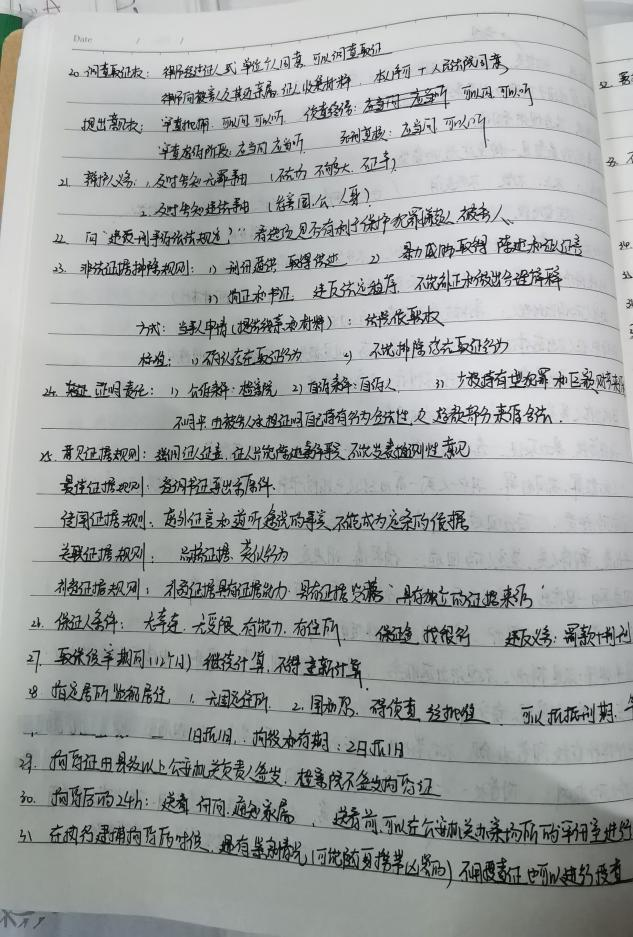 Date
20. 调查取证权: 律师经过证人或单位个人同意, 可以调查取证
律师向被害人及其近亲属、证人收集材料, 本人许可 + 人民法院同意
提出意见权: 审查批捕: 可以问 可以听 侦查终结: 应当问 应当听 可以问 可以听
审查起诉阶段: 应当问 应当听 死刑复核: 应当问 可以听
21. 辩护人义务: 1. 及时告知无罪事由 (不在场 不够大 不正常)
2. 及时告知违法事由 (危害国、公、人身)
22. 问"违反刑事诉讼法规定?" 看选项是否有利于保护犯罪嫌疑人 被害人
23. 非法证据排除规则: 1) 刑讯逼供 取得供述 2) 暴力威胁取得 陈述和证人证言
3) 物证和书证 违反法定程序 不能补正和做出合理解释
方式: 当事人申请 (提供线索和材料): 法院依职权
标准: 1) 确认存在取证行为 2) 不能排除 非法取证行为
24. 证明责任: 1) 公诉案件: 检察院 2) 自诉案件: 自诉人 3) 持有型犯罪 和巨额财产来源
不明中, 由被告人承担证明自己持有行为合法性 及 超额部分来源合法.
25. 意见证据规则: 证人证言, 证人只能陈述案件事实 不能发表推测性意见
最佳证据规则: 书证要出示原件.
传闻证据规则: 庭外证言和道听途说的事实 不能成为定案的依据
关联证据规则: 品格证据、类似行为
补强证据规则: 补强证据具有证据能力 具有证据资格 "具有独立的证据来源"
26. 保证人条件: 无牵连 无受限 有能力 有住所 保证金 找银行 违反义务: 罚款+刑
27. 取保候审期间 (12个月) 继续计算, 不得重新计算.
28 指定居所监视居住 1. 无固定住所 2. 国、恐 碍侦查 经批准 可以折抵刑期:
1日抵1日, 拘役和有期: 2日抵1日
29. 拘留证由县级以上公安机关负责人签发, 检察院不签发拘留证
30. 拘留后的24h: 送看 讯问 通知家属, 送看前, 可以在公安机关办案场所的审讯室进行
31 在执行逮捕拘留的时候, 遇有紧急情况 (可能随身携带凶器的) 不用搜查证 也可以进行搜查